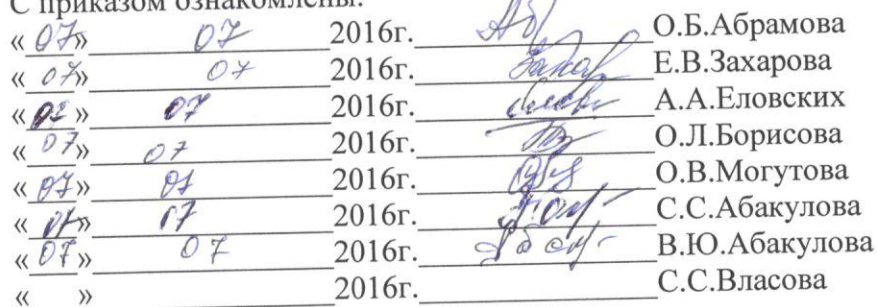 С приказом ознакомлены:
« 07 » 07 2016г. О.Б.Абрамова
« 07 » 07 2016г. Захар Е.В.Захарова
« 07 » 07 2016г. А.А.Еловских
« 07 » 07 2016г. О.Л.Борисова
« 07 » 07 2016г. О.В.Могутова
« 07 » 07 2016г. С.С.Абакулова
« 07 » 07 2016г. В.Ю.Абакулова
« » 2016г. С.С.Власова